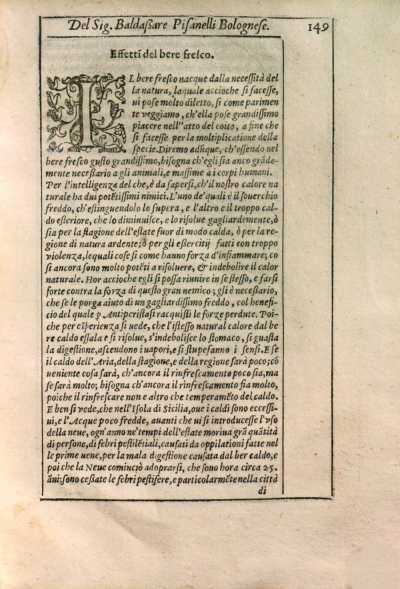 Del Sig. Baldaſſare Piſanelli Bologneſe. 149
Effetti del bere freſco.
IL bere freſco nacque dalla neceſsità del
la natura, laquale accioche ſi faceſſe,
ui poſe molto diletto, ſi come parimen
te veggiamo, ch'ella poſe grandiſsimo
piacere nell'atto del coito, a fine che
ſi faceſſe per la moltiplicatione della
ſpecie. Diremo adūque, ch'eſſendo nel
bere freſco guſto grandiſsimo, biſogna ch'egli ſia anco grāde-
mente neceſſario a gli animali, e maſsime a i corpi humani.
Per l'intelligenza del che, è da ſaperſi, ch'il noſtro calore na
turale ha dui potētiſsimi nimici. L'uno de' quali è il ſouerchio
freddo, ch'eſtinguendolo lo ſupera, e l'altro è il troppo cal-
do eſteriore, che lo diminuiſce, e lo riſolue gagliardemente, ò
ſia per la ſtagione dell'eſtate fuor di modo calda, ò per la re-
gione di natura ardente; ò per gli eſſercitij fatti con troppo
violenza, le quali coſe ſi come hanno forza d'infiammare; co
ſi ancora ſono molto potēti a riſoluere, & indebolire il calor
naturale. Hor accioche egli ſi poſſa riunire in ſe ſteſſo, e farſi
forte contra la forza di queſto gran nemico; gli è neceſſario,
che ſe le porga aiuto di un gagliardiſsimo freddo, col benefi-
cio del quale p Antipcriſtaſi racquiſti le forze perdute. Poi-
che per eſperienza ſi uede, che l'iſteſſo natural calore dal be
re caldo eſſala e ſi riſolue, s'indeboliſce lo ſtomaco, ſi guaſta
la digeſtione, aſcendono i uapori, e ſi ſtupefanno i ſenſi. E ſe
il caldo dell'Aria, della ſtagione, e della regione ſarà poco; cō
ueniente coſa ſarà, ch'ancora il rinfreſcamento poco ſia, ma
ſe ſarà molto; biſogna ch'ancora il rinfreſcamento ſia molto,
poiche il rinfreſcare non è altro che temperamēto del caldo.
E ben ſi vede, che nell'Iſola di Sicilia, oue i caldi ſono ecceſſi-
ui, e l'Acque poco fredde, auanti che ui ſi introduceſſe l'vſo
della neue, ogn'anno ne' tempi dell'eſtate moriua grā quātità
di perſone, di febri peſtilētiali, cauſati da oppilationi fatte nel
le prime uene, per la mala digeſtione cauſata dal ber caldo, e
poi che la Neue cominciò adoprarſi, che ſono hora circa 25.
āni: ſono ceſſate le febri peſtifere, e particolarmēte nella città
di